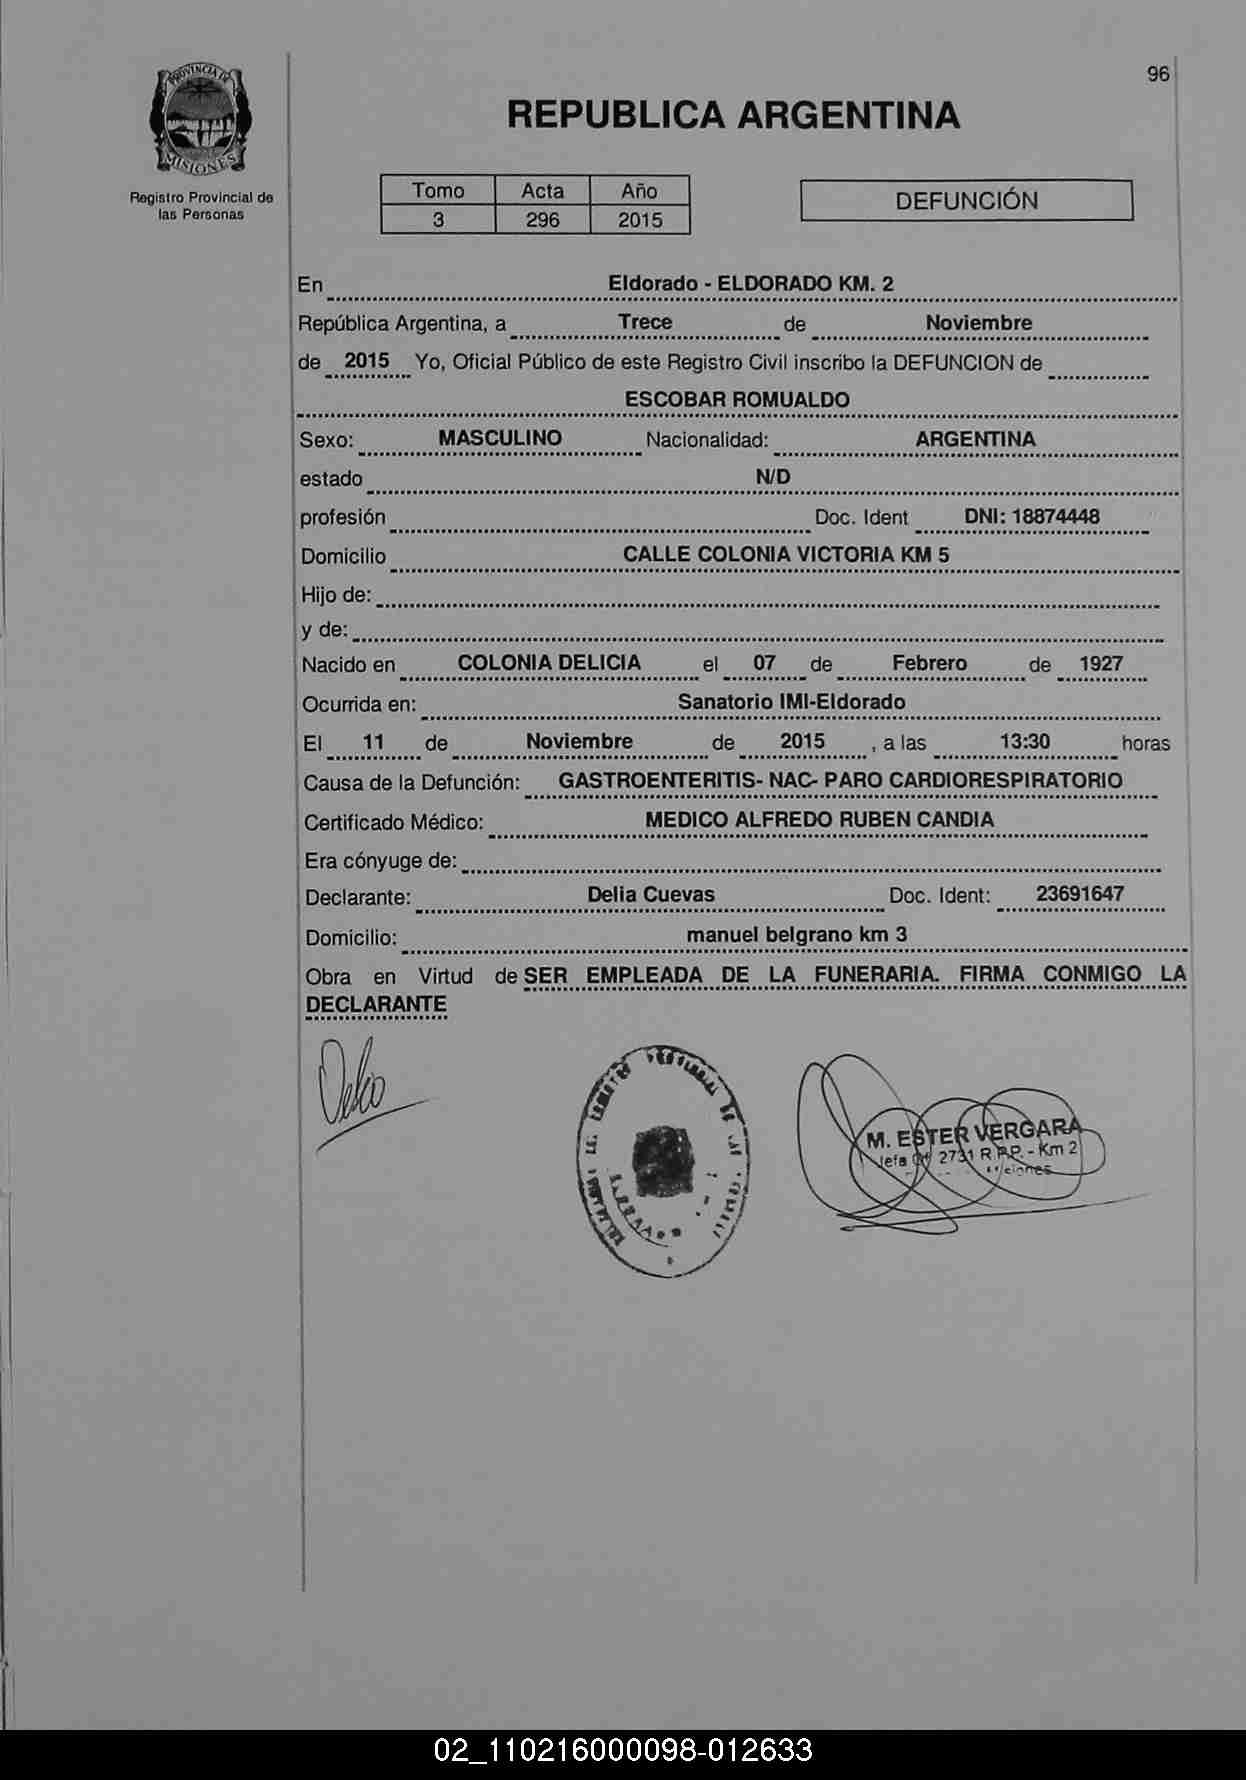 96
PROVINCIA DE
MISIONES
Registro Provincial de
las Personas
REPUBLICA ARGENTINA
Tomo Acta Año
3 296 2015
DEFUNCIÓN
En Eldorado - ELDORADO KM. 2
República Argentina, a Trece de Noviembre
de 2015 Yo, Oficial Público de este Registro Civil inscribo la DEFUNCION de
ESCOBAR ROMUALDO
Sexo: MASCULINO Nacionalidad: ARGENTINA
estado N/D
profesión Doc. Ident DNI: 18874448
Domicilio CALLE COLONIA VICTORIA KM 5
Hijo de:
y de:
Nacido en COLONIA DELICIA el 07 de Febrero de 1927
Ocurrida en: Sanatorio IMI-Eldorado
El 11 de Noviembre de 2015 , a las 13:30 horas
Causa de la Defunción: GASTROENTERITIS- NAC- PARO CARDIORESPIRATORIO
Certificado Médico: MEDICO ALFREDO RUBEN CANDIA
Era cónyuge de:
Declarante: Delia Cuevas Doc. Ident: 23691647
Domicilio: manuel belgrano km 3
Obra en Virtud de SER EMPLEADA DE LA FUNERARIA. FIRMA CONMIGO LA
DECLARANTE
M. ESTER VERGARA
Jefa Of. 2731 R.P.P. - Km 2
02_110216000098-012633